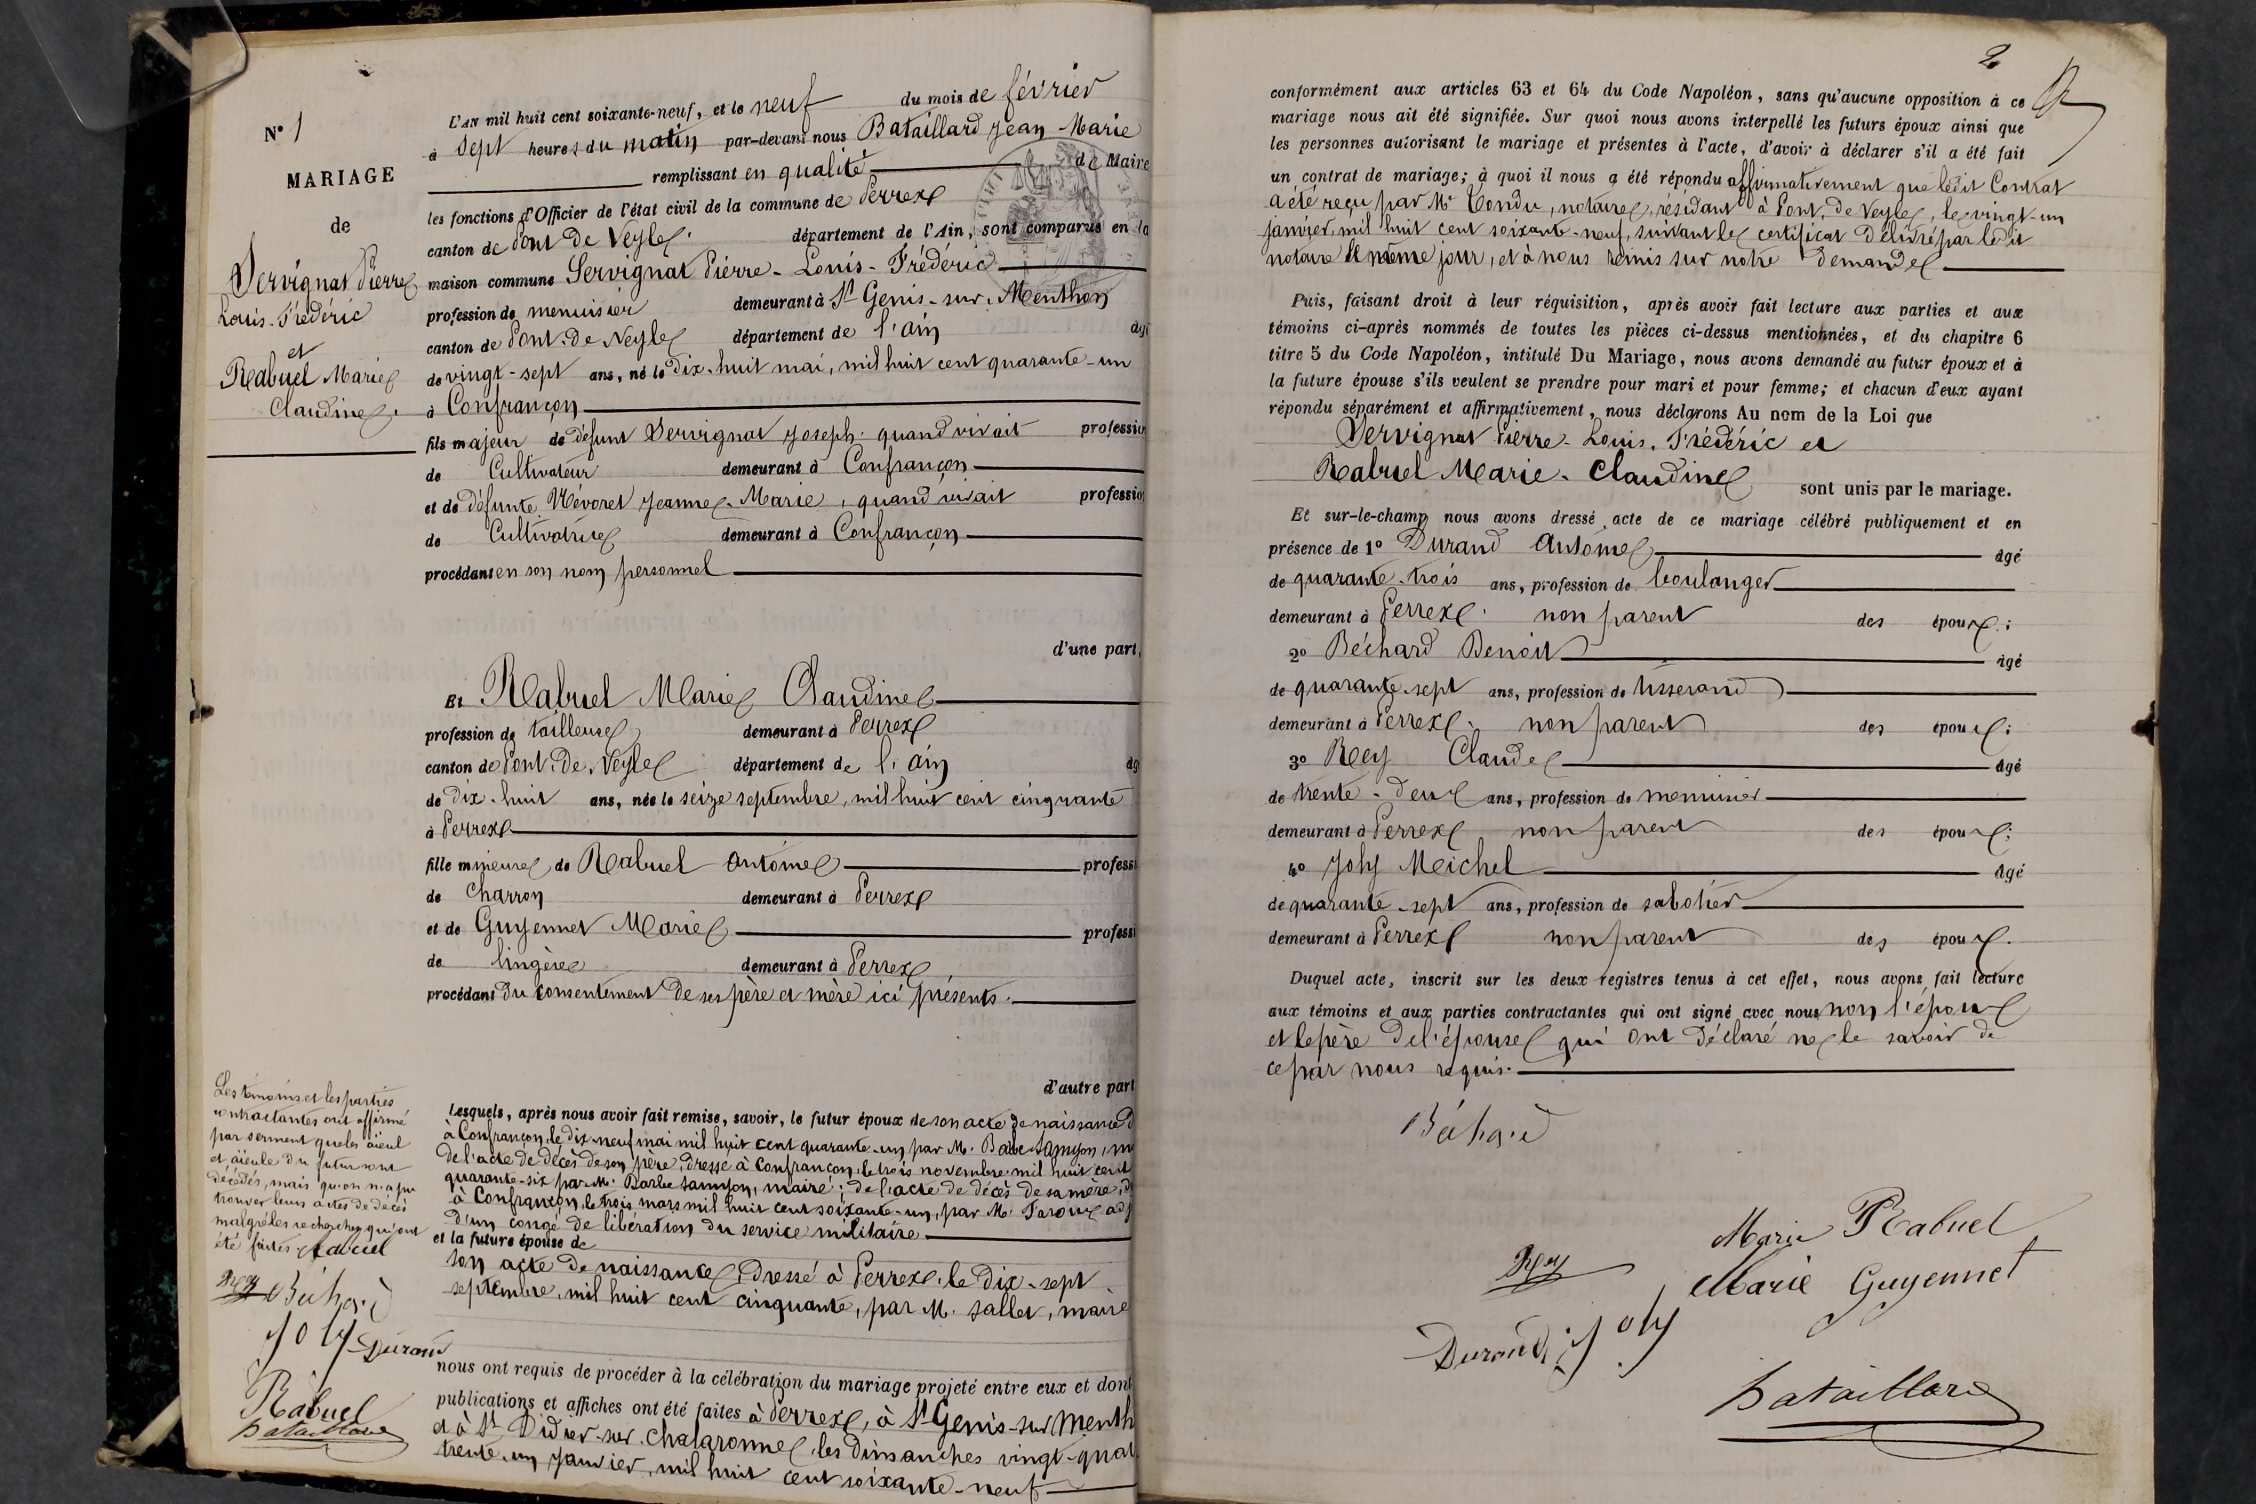 N° 1
MARIAGE
de
Servignat Pierre
Louis-Frédéric
et
Rabuel Marie
Claudine.
L'AN mil huit cent soixante-neuf, et le neuf du mois de février
à sept heures du matin par-devant nous Bataillard Jean-Marie
remplissant en qualité de Maire
les fonctions d'Officier de l'état civil de la commune de Perrex
canton de Pont de Veyle. département de l'Ain, sont comparus en la
maison commune Servignat Pierre-Louis-Frédéric
profession de menuisier demeurant à St Genis-sur-Menthon
canton de Pont-de-Veyle département de l'ain âgé
de vingt-sept ans, né le dix-huit mai, mil huit cent quarante-un
à Confrançon
fils majeur de défunt Servignat Joseph quand vivait profession
de Cultivateur demeurant à Confrançon
et de défunte Névoret Jeanne-Marie, quand vivait profession
de Cultivatrice demeurant à Confrançon
procédant en son nom personnel
d'une part,
Et Rabuel Marie Claudine
profession de tailleuse demeurant à Perrex
canton de Pont-de-Veyle département de l'ain âg
de dix-huit ans, née le seize septembre, mil huit cent cinquante
à Perrex
fille mineure de Rabuel Antoine professi
de Charron demeurant à Perrex
et de Guyennet Marie professi
de lingère demeurant à Perrex
procédant du consentement de ses père et mère ici présents.
d'autre part
Lesquels, après nous avoir fait remise, savoir, le futur époux de son acte de naissance d
à Confrançon, le dix-neuf mai mil huit cent quarante-un par M. Barbe Samyon, m
de l'acte de décès de son père, dressé à Confrançon, le trois novembre mil huit cent
quarante-six par M. Barbe Samyon, maire; de l'acte de décès de sa mère, d
à Confrançon, le trois mars mil huit cent soixante-un, par M. adj
d'un congé de libération du service militaire
et la future épouse de
son acte de naissance, dressé à Perrex, le dix-sept
septembre, mil huit cent cinquante, par M. Sallet, maire
nous ont requis de procéder à la célébration du mariage projeté entre eux et dont
publications et affiches ont été faites à Perrex, à St Genis-sur Menth
et à St Didier-sur-Chalaronne les dimanches vingt-quat
trente-un janvier, mil huit cent soixante-neuf
Les témoins et les parties
contractantes ont affirmé
par serment que les aïeul
et aïeule du futur sont
décédés, mais qu'on n'a pu
trouver leurs actes de décès
malgré les recherches qui ont
été faites Rabuel
Rey Béchard
Joly Durand
Rabuel
Bataillard
2
conformément aux articles 63 et 64 du Code Napoléon, sans qu'aucune opposition à ce
mariage nous ait été signifiée. Sur quoi nous avons interpellé les futurs époux ainsi que
les personnes autorisant le mariage et présentes à l'acte, d'avoir à déclarer s'il a été fait
un contrat de mariage; à quoi il nous a été répondu affirmativement que ledit Contrat
a été reçu par Me Condu, notaire, résidant à Pont-de-Veyle, le vingt-un
janvier, mil huit cent soixante-neuf, suivant le certificat délivré par ledit
notaire le même jour, et à nous remis sur notre demande
Puis, faisant droit à leur réquisition, après avoir fait lecture aux parties et aux
témoins ci-après nommés de toutes les pièces ci-dessus mentionnées, et du chapitre 6
titre 5 du Code Napoléon, intitulé Du Mariage, nous avons demandé au futur époux et à
la future épouse s'ils veulent se prendre pour mari et pour femme; et chacun d'eux ayant
répondu séparément et affirmativement, nous déclarons Au nom de la Loi que
Servignat Pierre-Louis-Frédéric et
Rabuel Marie-Claudine
sont unis par le mariage.
Et sur-le-champ nous avons dressé acte de ce mariage célébré publiquement et en
présence de 1° Durand Antoine âgé
de quarante-trois ans, profession de boulanger
demeurant à Perrex. non parent des époux;
2° Béchard Benoit âgé
de quarante-sept ans, profession de tisserand
demeurant à Perrex. non parent des époux;
3° Rey Claude âgé
de trente-deux ans, profession de menuisier
demeurant à Perrex non parent des époux;
4° Joly Michel âgé
de quarante-sept ans, profession de sabotier
demeurant à Perrex non parent des époux.
Duquel acte, inscrit sur les deux registres tenus à cet effet, nous avons fait lecture
aux témoins et aux parties contractantes qui ont signé avec nous non l'époux
et le père de l'épouse qui ont déclaré ne le savoir de
ce par nous requis.
Béchard
Marie Rabuel
Rey
Marie Guyennet
Durand Joly
Bataillard